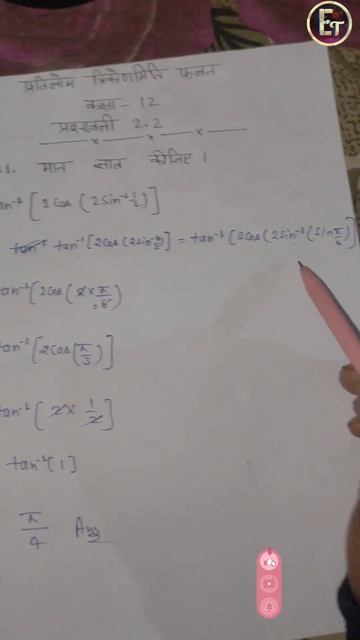 ET
प्रतिलोम त्रिकोणमिति फलन
कक्षा - 12
प्रश्नावली 2.2
.1. मान ज्ञात कीजिए।
an⁻¹[2cos(2sin⁻¹ 1/2)]
tan⁻¹[2cos(2sin⁻¹ 1/2)] = tan⁻¹[2cos(2sin⁻¹(sin π/6)]
tan⁻¹[2cos(2×π/6)
tan⁻¹[2cos(π/3)]
tan⁻¹[2×1/2]
tan⁻¹[1]
π/4 Ans